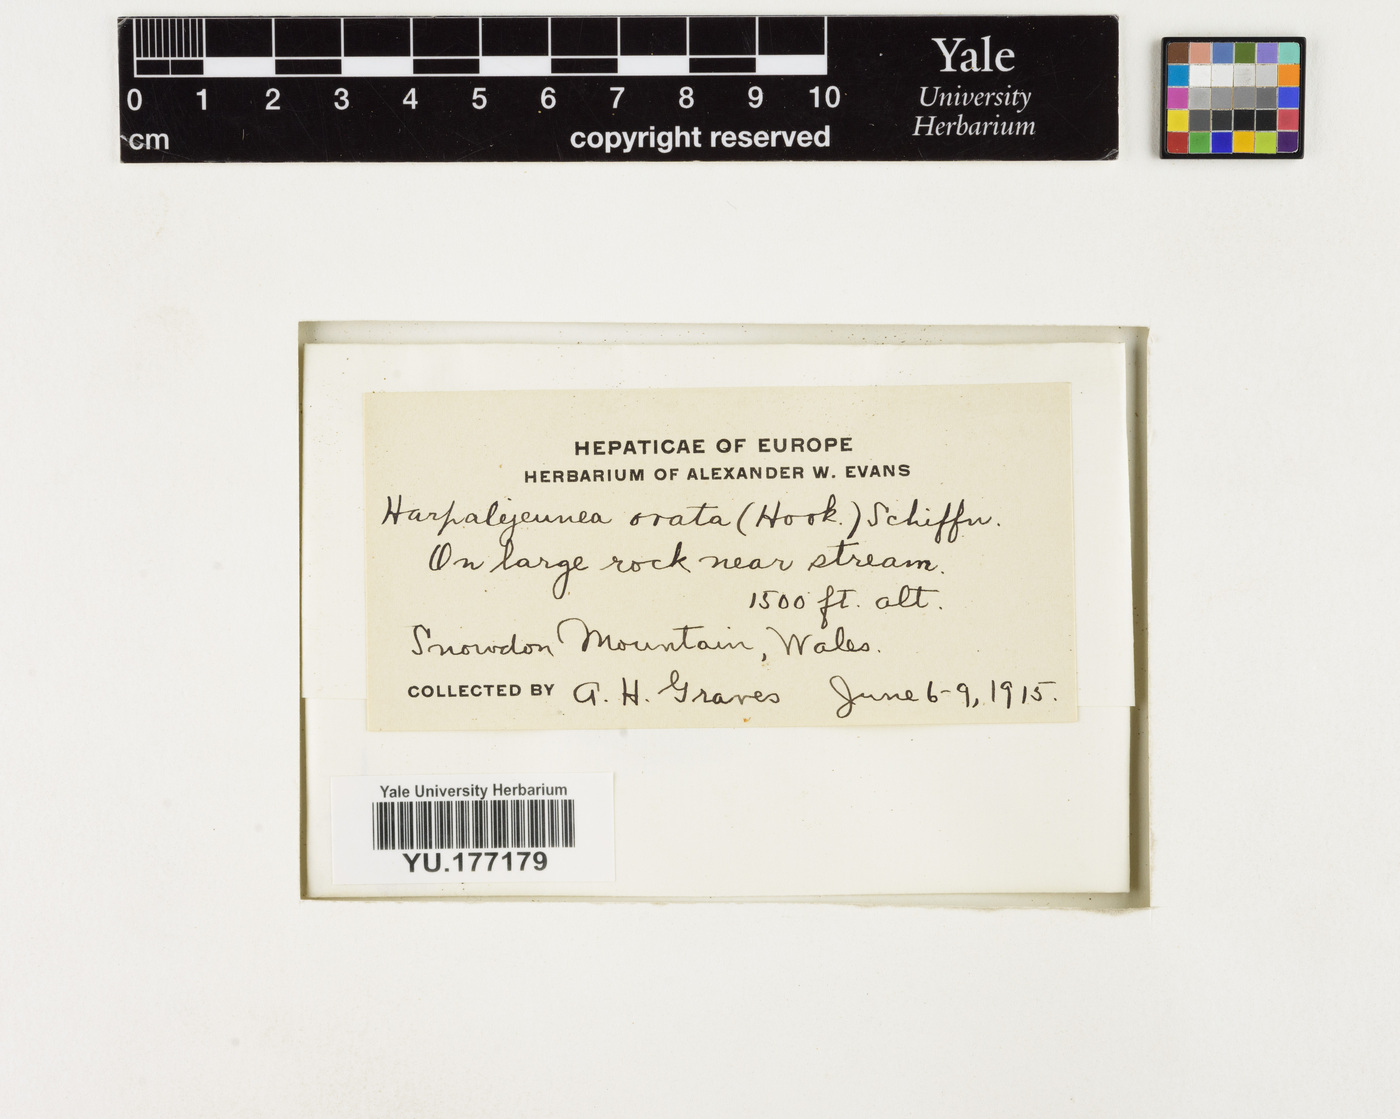 0 1 2 3 4 5 6 7 8 9 10
cm
copyright reserved
Yale
University
Herbarium
HEPATICAE OF EUROPE
HERBARIUM OF ALEXANDER W. EVANS
Harpalejeunea ovata (Hook.) Schiffn.
On large rock near stream.
1500 ft. alt.
Snowdon Mountain, Wales.
COLLECTED BY A. H. Graves June 6-9, 1915.
Yale University Herbarium
YU.177179